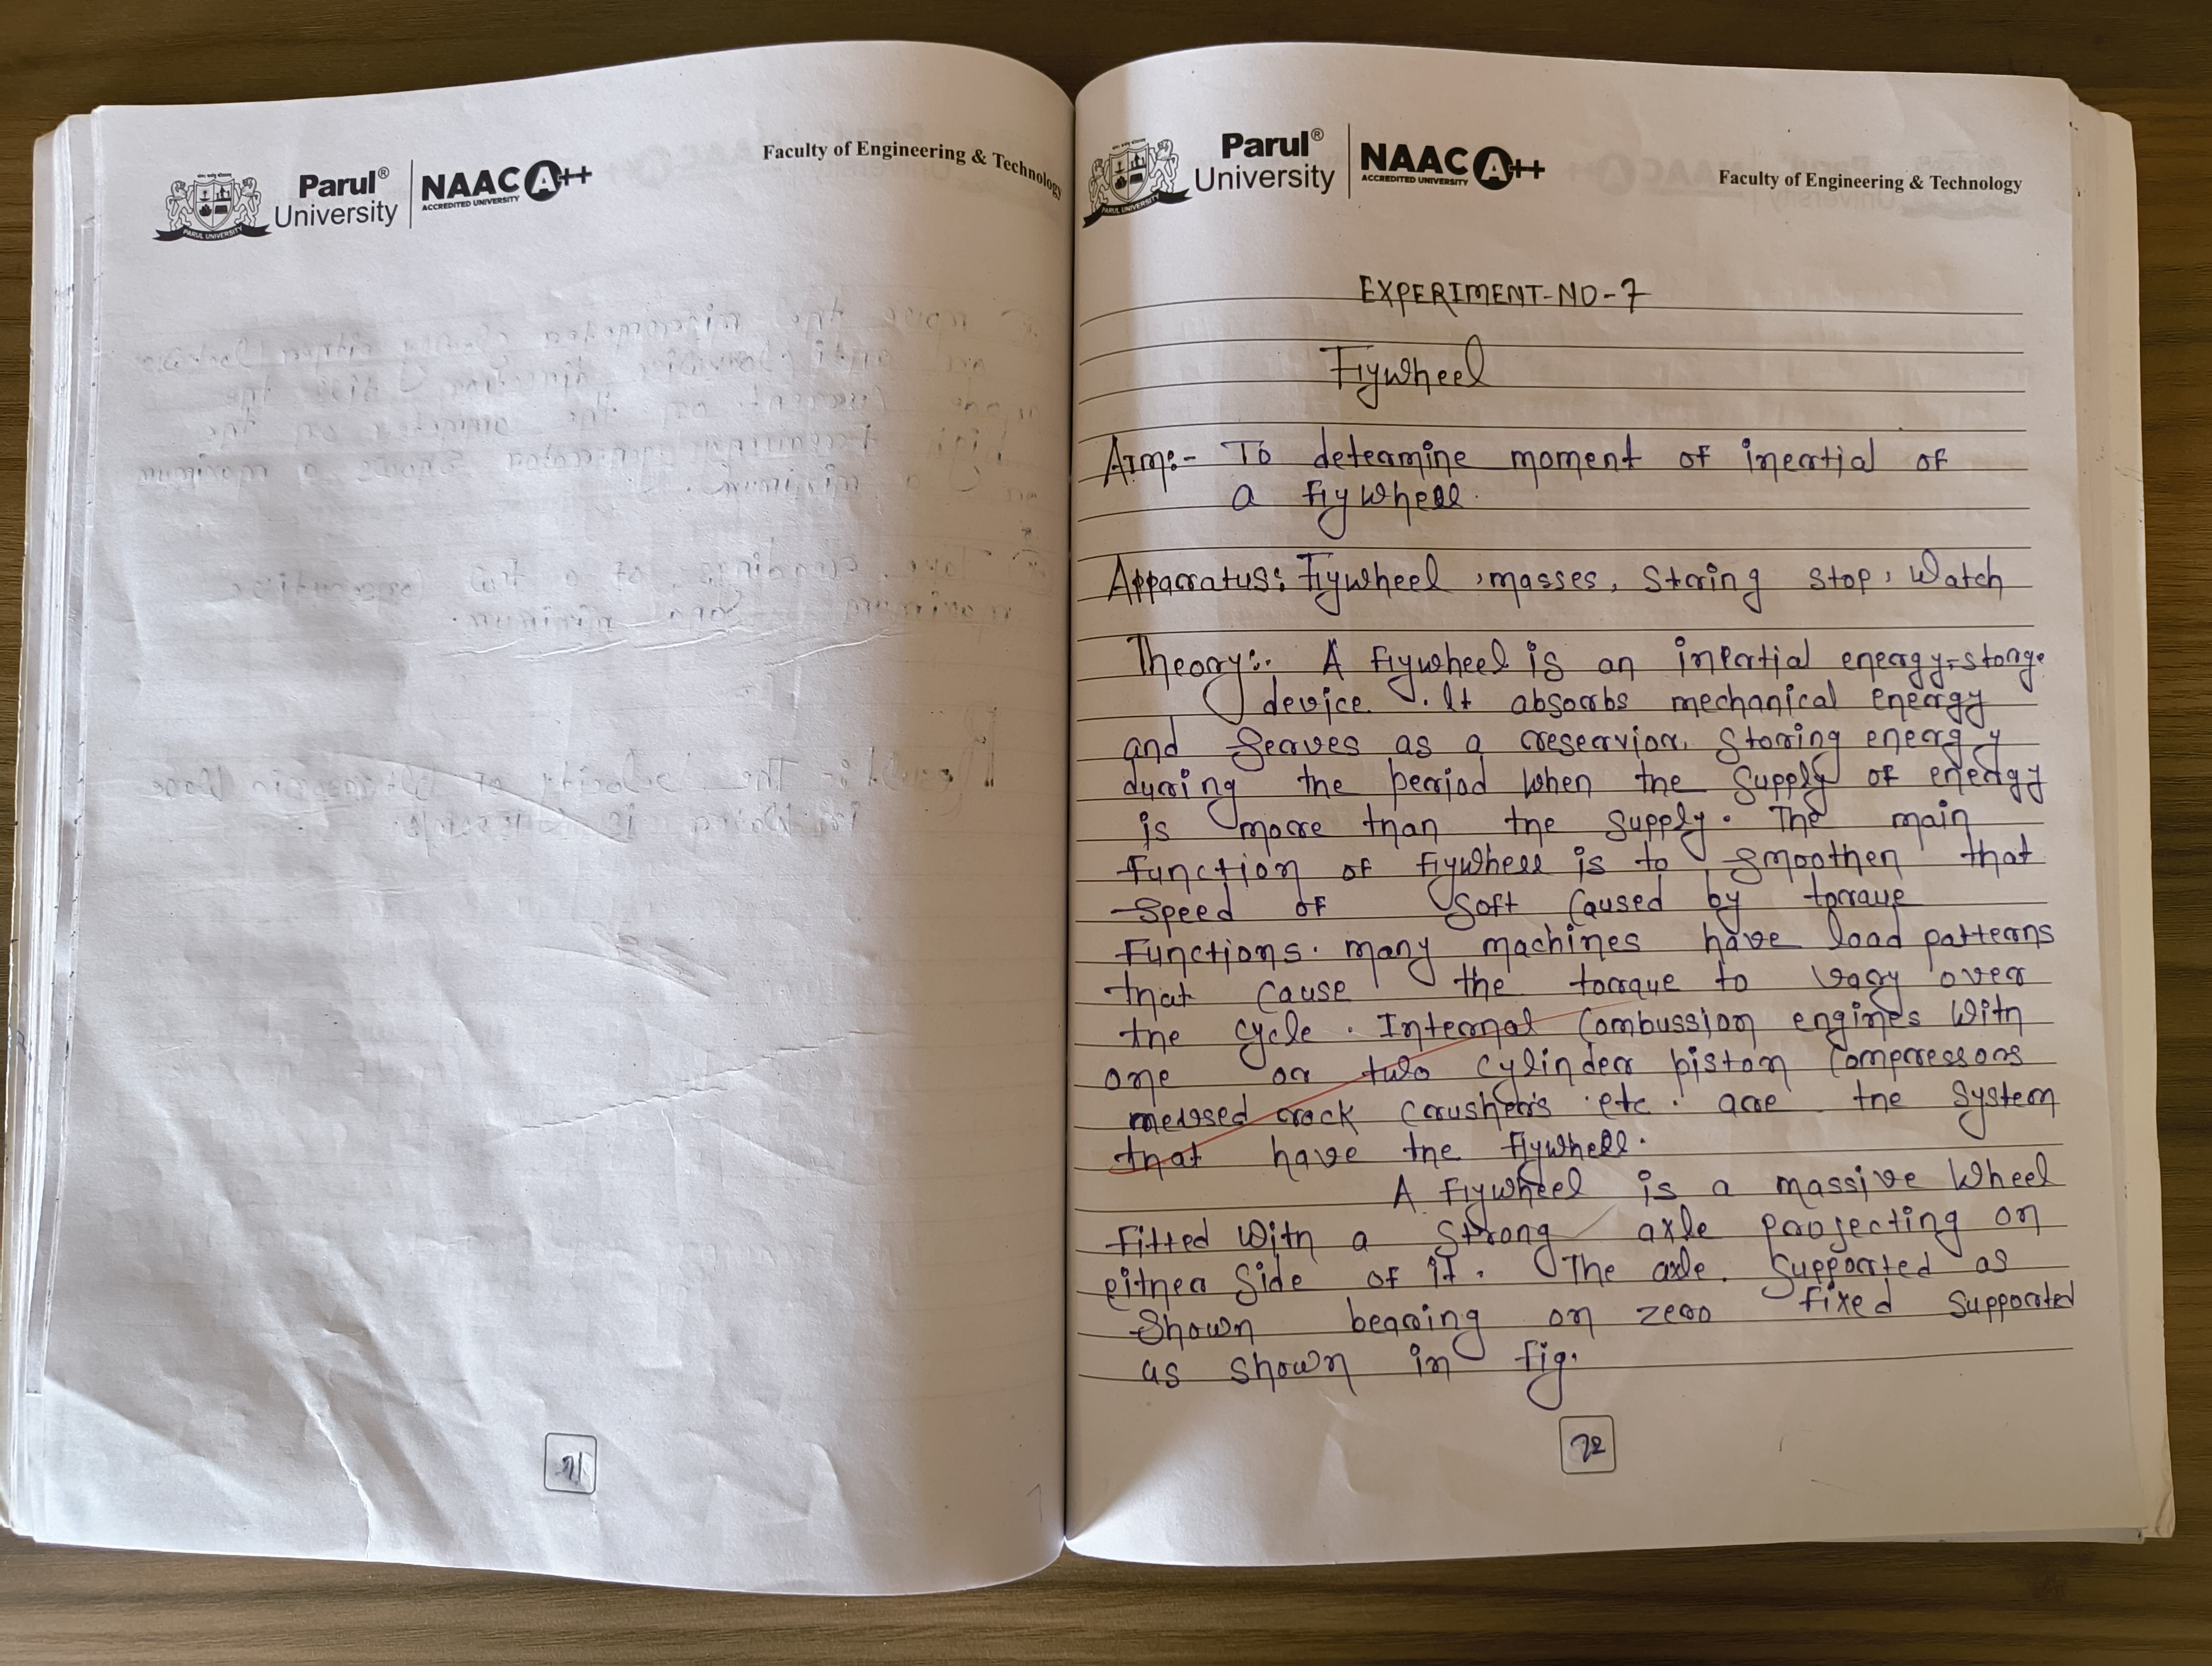 Parul® University
NAAC A++
ACCREDITED UNIVERSITY
PARUL UNIVERSITY
Faculty of Engineering & Technology
71
Parul® University
NAAC A++
ACCREDITED UNIVERSITY
PARUL UNIVERSITY
Faculty of Engineering & Technology
EXPERIMENT-NO-7
Flywheel
Aim:- To determine moment of inertial of
a flywheel.
Apparatus: Flywheel, masses, String stop, Watch
Theory:- A flywheel is an inertial energy-storge
device. It absorbs mechanical energy
and serves as a reservior, storing energy
during the period when the supply of energy
is more than the supply. The main
function of flywheel is to smoothen that
speed of soft caused by torque
Functions. many machines have load patterns
that cause the torque to vary over
the cycle. Internal combussion engines with
one or two cylinder piston compressors
rock crushers etc. are the system
that have the flywheel.
A flywheel is a massive wheel
fitted with a strong axle projecting on
either side of it. The axle. Supported as
shown bearing on zero fixed supported
as shown in fig.
72